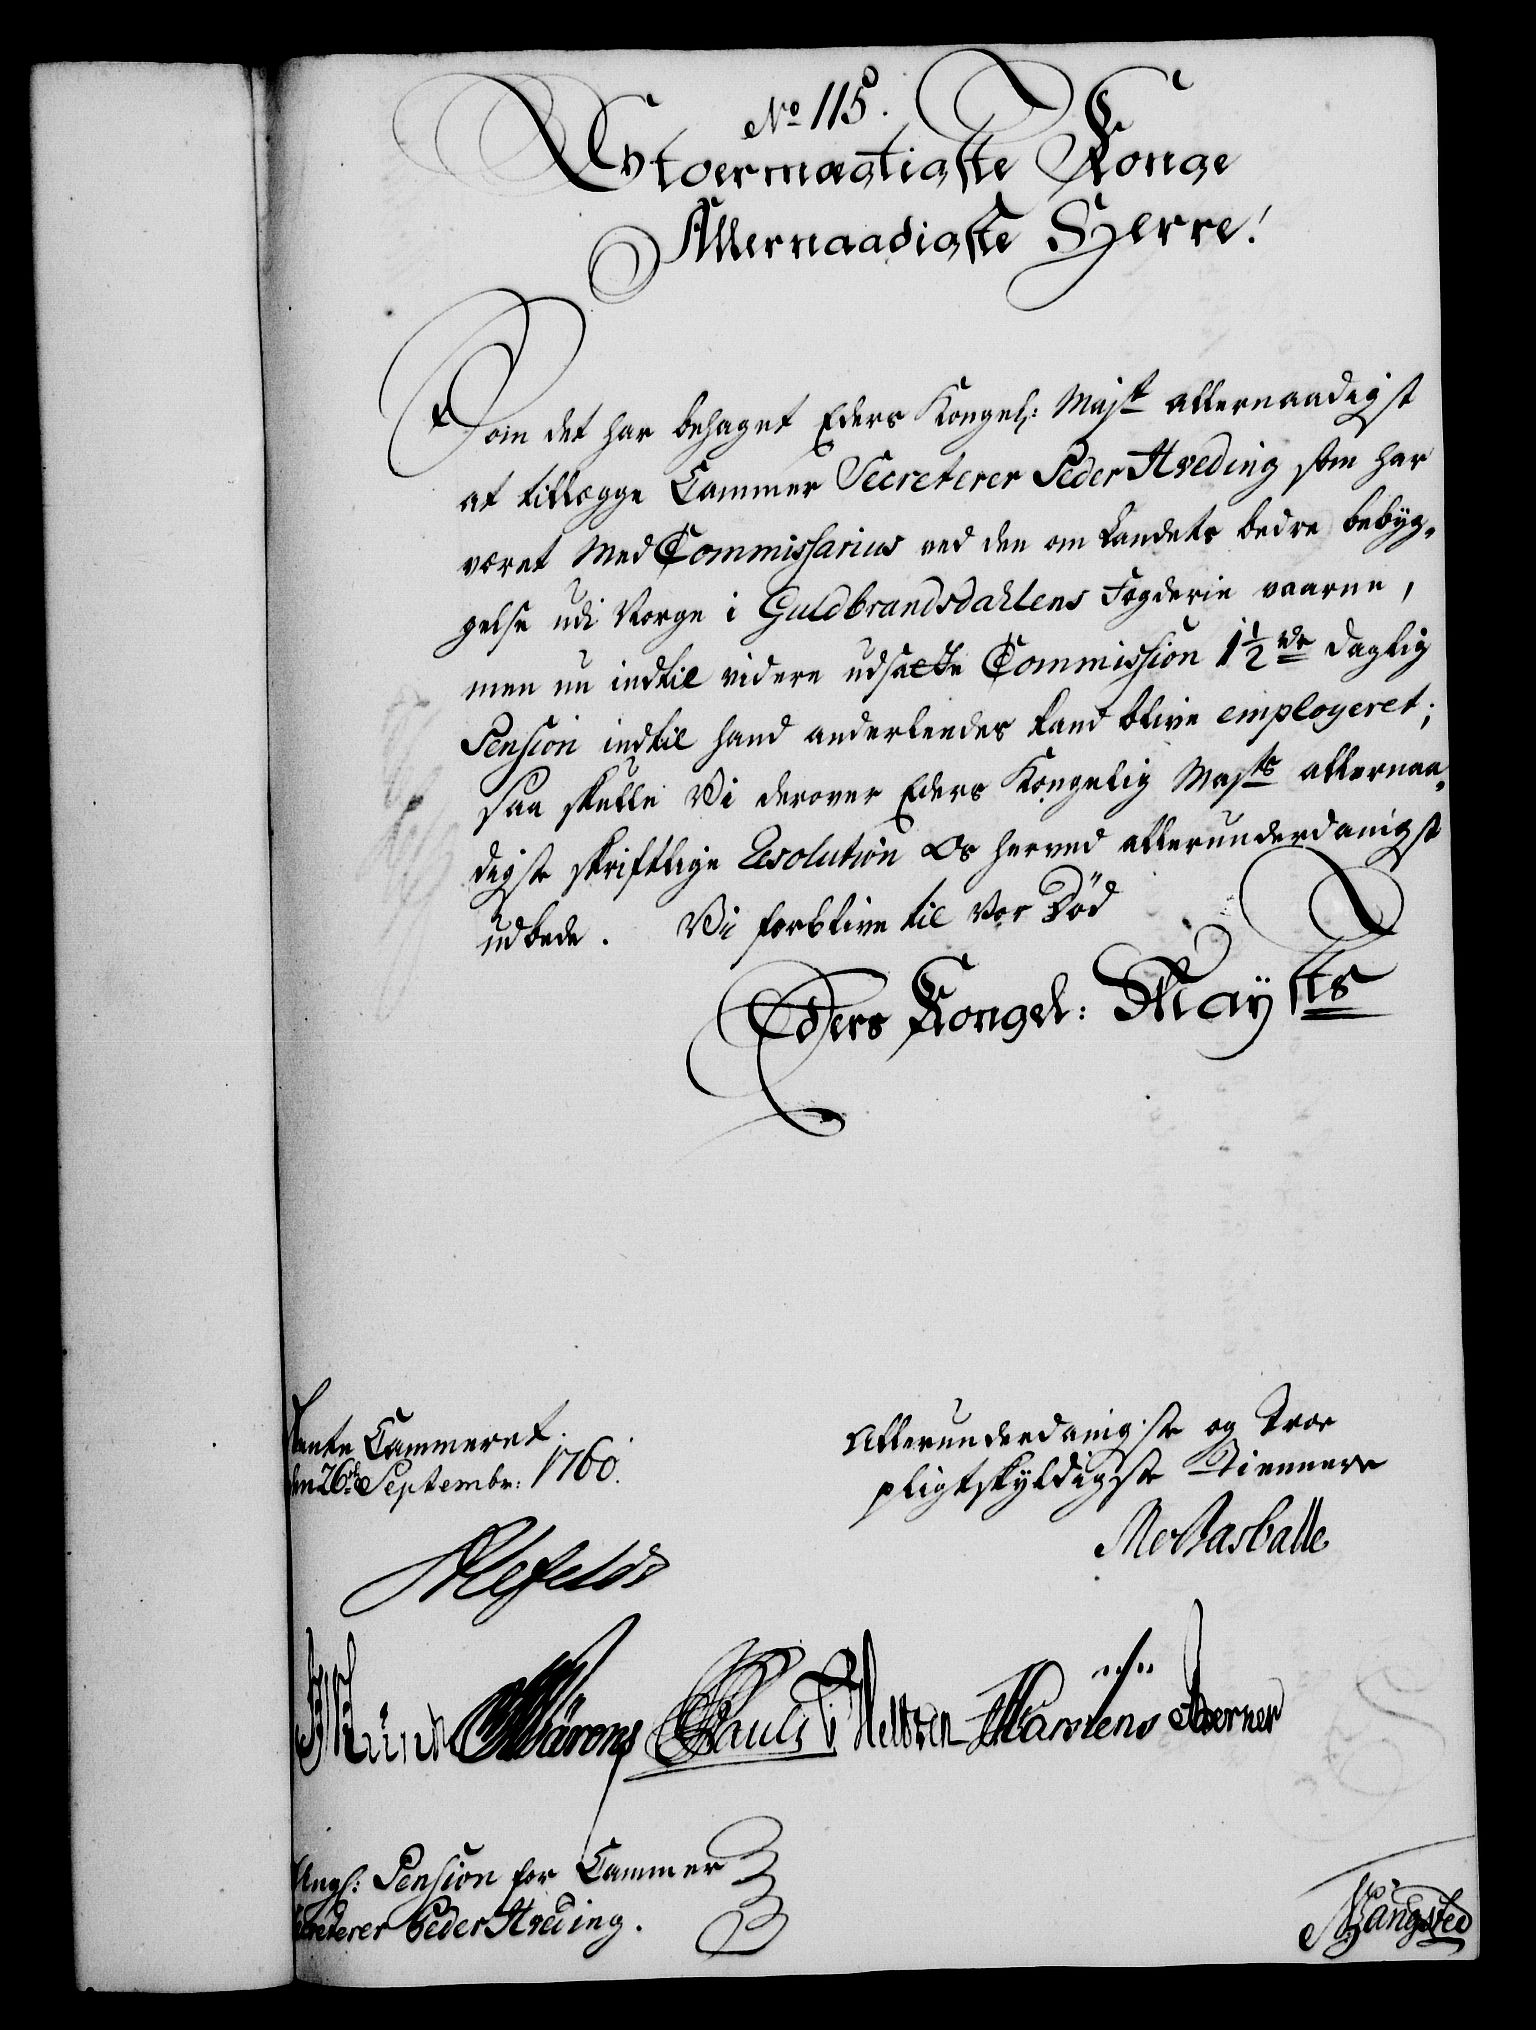 No 115.
Stormægtigste Konge
Allernaadigste Herre!
Som det har behaget Eders Kongel: Majt allernaadigst
at tillægge Cammer Secreterer Peder Hveding som har
været Med Commissarius ved den om Landets bedre bebyg-
gelse udi Norge i Guldbrandsdahlens Fogderie vaarne,
men nu indtil videre udsatte Commission 1½ rdr daglig
Pension indtil hand anderleedes kand blive employeret;
saa skulle Vi derover Eders Kongelig Majts allernaa-
digste skriftlige Resolution Os herved allerunderdanigst
udbede. Vi forblive til Vor Död
Eders Kongel: Maytts
Rente Cammeret.
den 26de Septembr: 1760.
Allerunderdanigste og Troe
pligtskyldigste Tiennere
Ahlefeldt
Pauli
Martens
Ang: Pension for Cammer
Secreterer Peder Hveding.